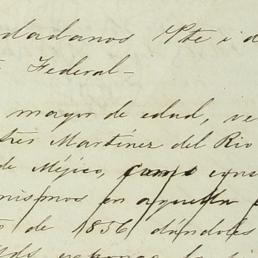 dadanos Pte i d
Federal-
mayor de edad, ve
tres Martinez del Rio
de Méjico, como
mismos en aquella
de 1856 dándoles